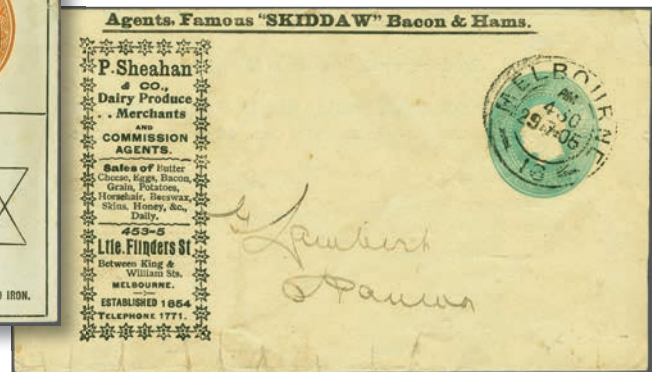 Agents. Famous "SKIDDAW" Bacon & Hams.
P. Sheahan
& CO.,
Dairy Produce
. . Merchants
AND
COMMISSION
AGENTS.
Sales of Butter
Cheese, Eggs, Bacon,
Grain, Potatoes,
Horsehair, Beeswax,
Skins, Honey, &c.,
Daily.
453-5
Ltle. Flinders St
Between King &
William Sts.
MELBOURNE.
ESTABLISHED 1854
TELEPHONE 1771.
MELBOURNE
AM
4 30
Lambert
IRON.